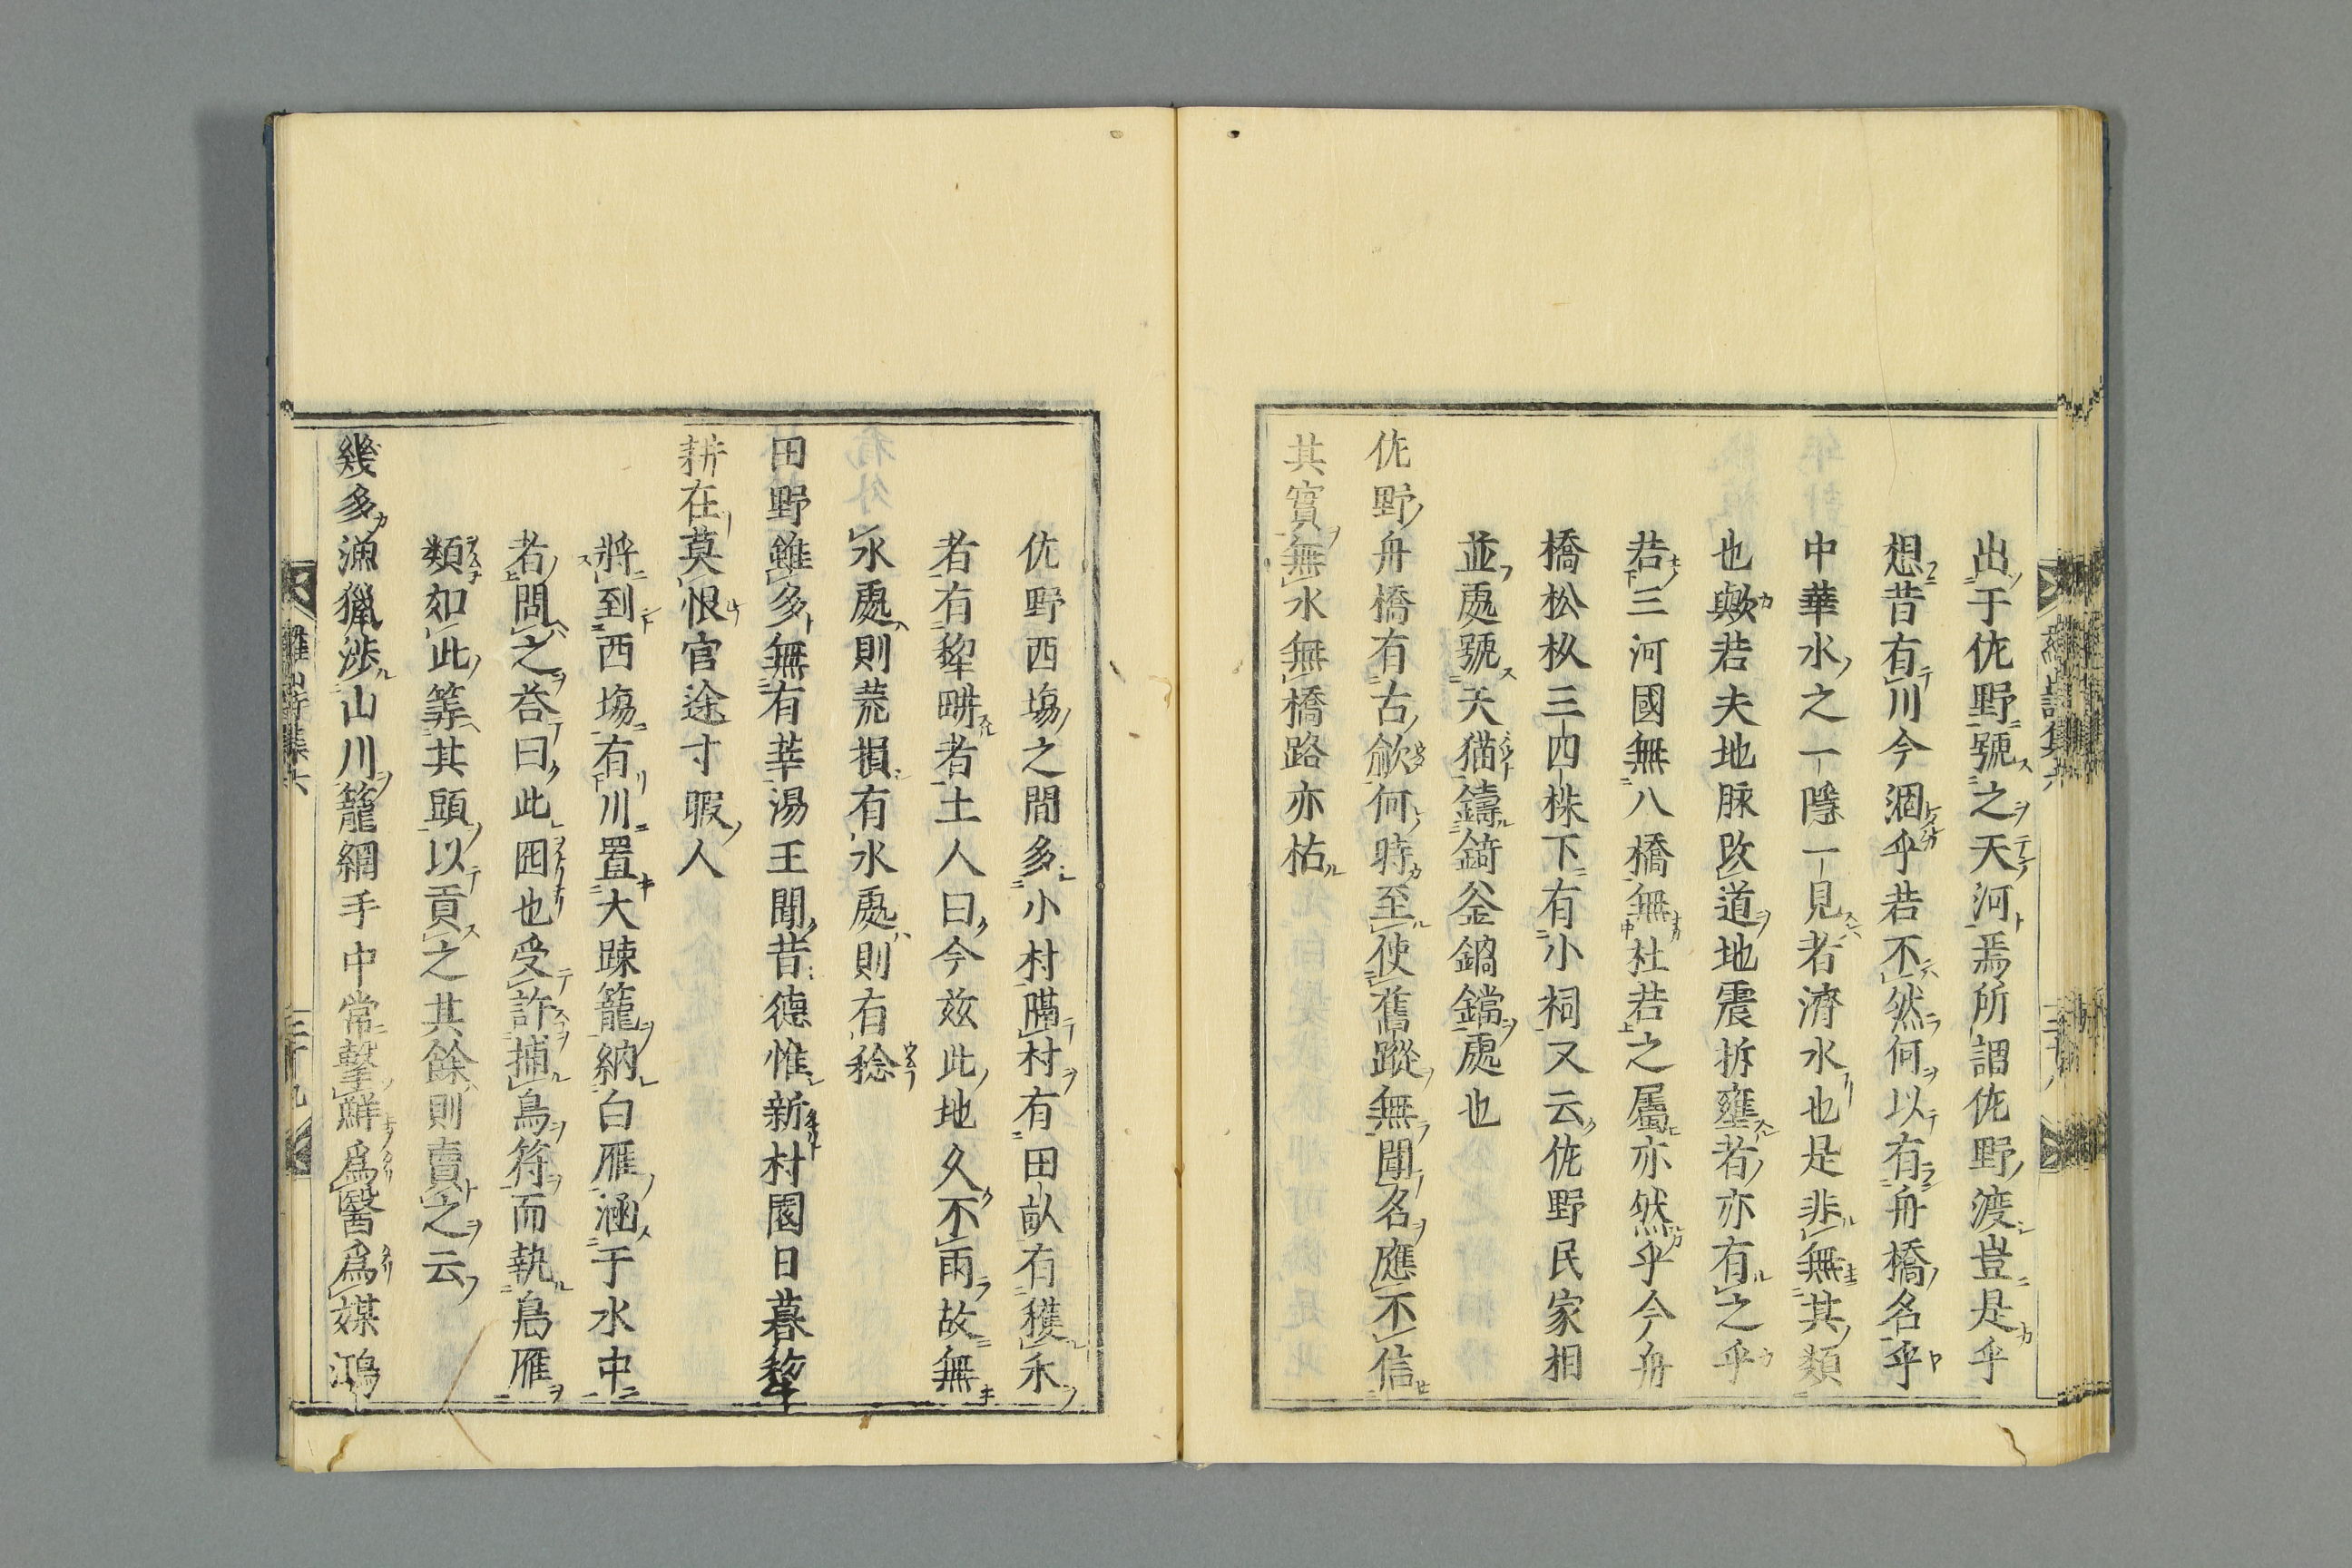 出于佐野號之天河焉所謂佐野渡豈是乎
想昔有川今涸乎若不然何以有舟橋名乎
中華水之一隱一見者濟水也是非無其類
也歟若夫地脉改道地震拆壅者亦有之乎
若三河國無八橋無杜若之屬亦然乎今舟
橋松杦三四株下有小祠又云佐野民家相
並處號天猫鑄錡釜鍋鐺處也
佐野舟橋有古歈何時至使舊蹤無聞名應不信
其實無水無橋路亦枯
佐野西塲之間多小村隣村有田畝有穫禾
者有犂畊者土人曰今玆此地久不雨故無
水處則荒損有水處則有稔
田野雖多無有莘湯王聞昔德惟新村園日暮犂
耕在莫恨官途寸暇人
將到西塲有川置大踈籠納白雁涵于水中
者問之荅曰此囮也受許捕鳥符而執鳥雁
類如此等其頭以貢之其餘則賣之云
幾多漁獵涉山川籠網手中常擊鮮爲醫爲媒鴻
羅山詩集六
三十九